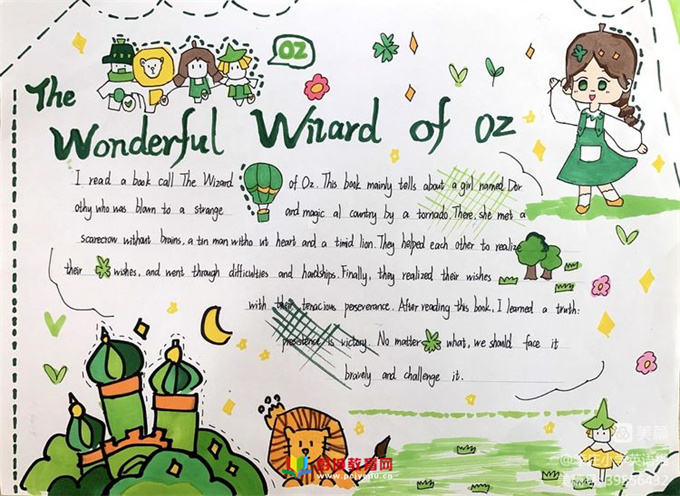 OZ
The
Wonderful Wizard of Oz
I read a book call The Wizard of Oz. This book mainly tells about a girl named Dor
othy who was blown to a strange and magic al country by a tornado. There, she met a
scarecrow without brains, a tin man witho ut heart and a timid lion. They helped each other to realize
their wishes, and went through difficulties and hardships. Finally, they realized their wishes
with their tenacious perseverance. After reading this book, I learned a truth:
is victory. No matter what, we should face it
bravely and challenge it.
美篇
教育网